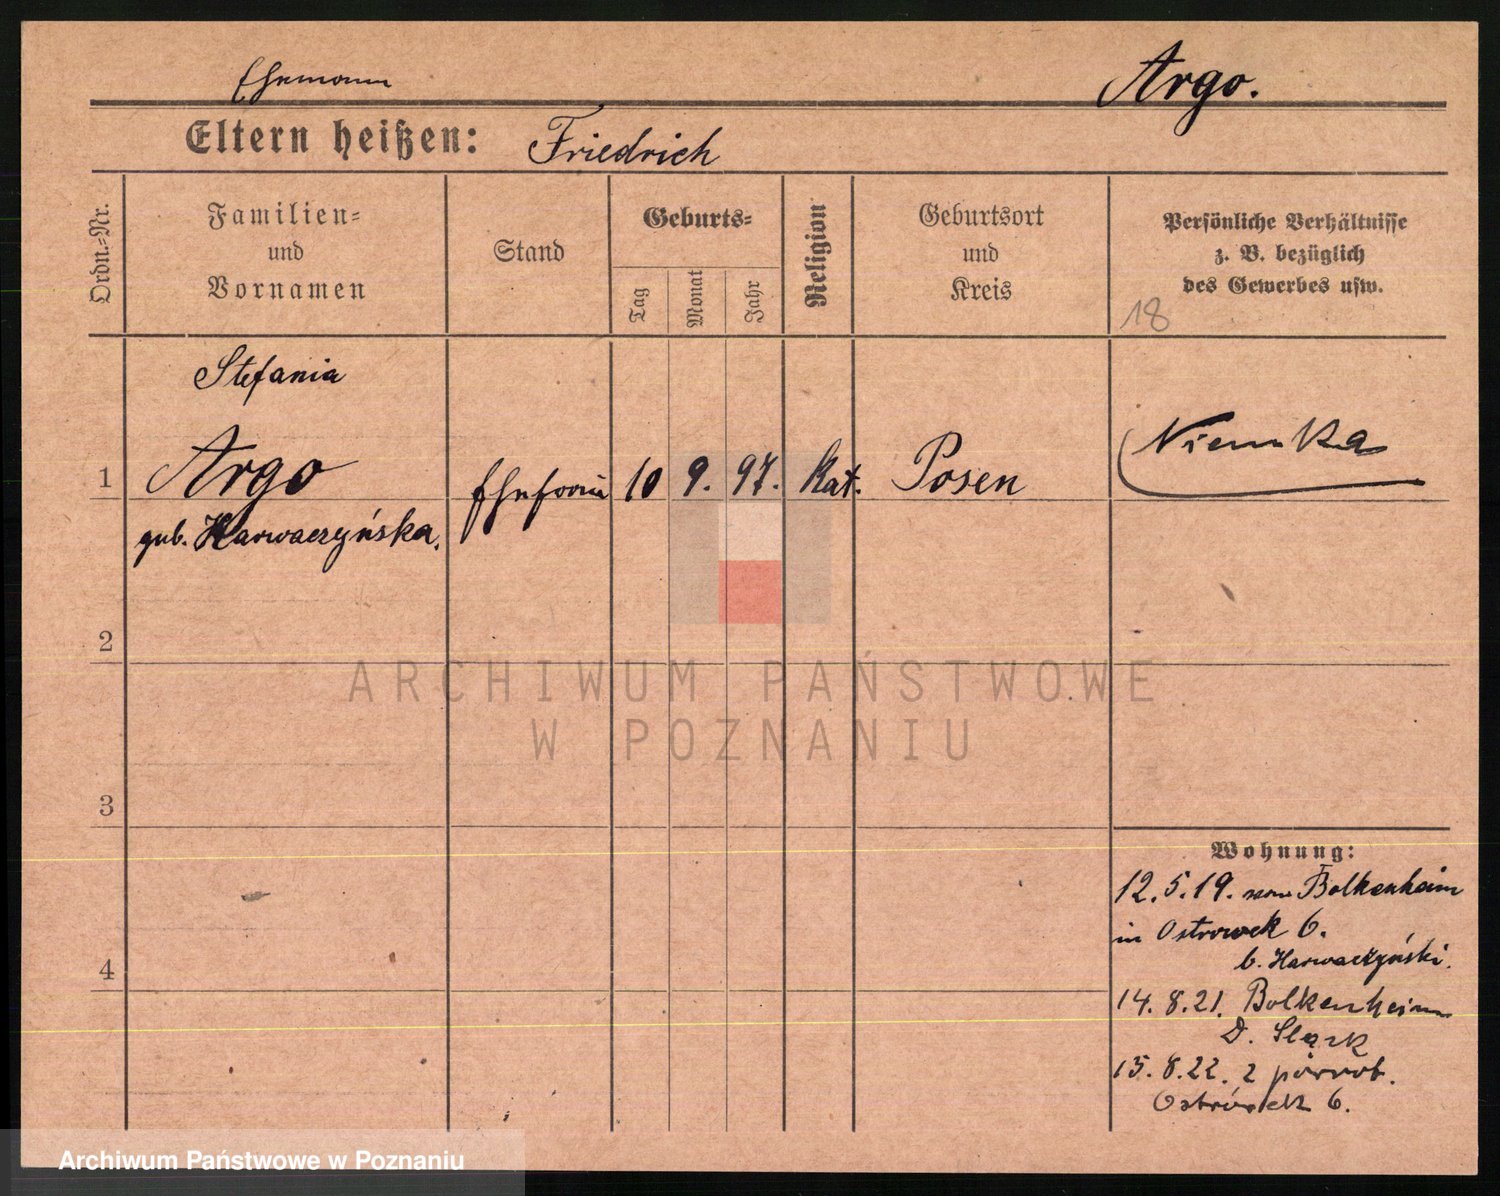 Ehemann
Argo.
Eltern heißen: Friedrich
Ordn.-Nr.
Familien-
und
Vornamen
Stand
Geburts-
Tag
Monat
Jahr
Religion
Geburtsort
und
Kreis
Persönliche Verhältnisse
z. B. bezüglich
des Gewerbes usw.
18
Stefania
1 Argo Ehefrau 10 9. 97. Kat. Posen Niemka
geb. Harwaczyńska.
2
ARCHIWUM PAŃSTWOWE
W POZNANIU
3
Wohnung:
12.5.19. von Bolkenhain
in Ostrowek 6.
b. Harwaczyński.
4
14.8.21. Bolkenheim
D. Sląsk
15.8.22. z powrot.
Ostrówek 6.
Archiwum Państwowe w Poznaniu